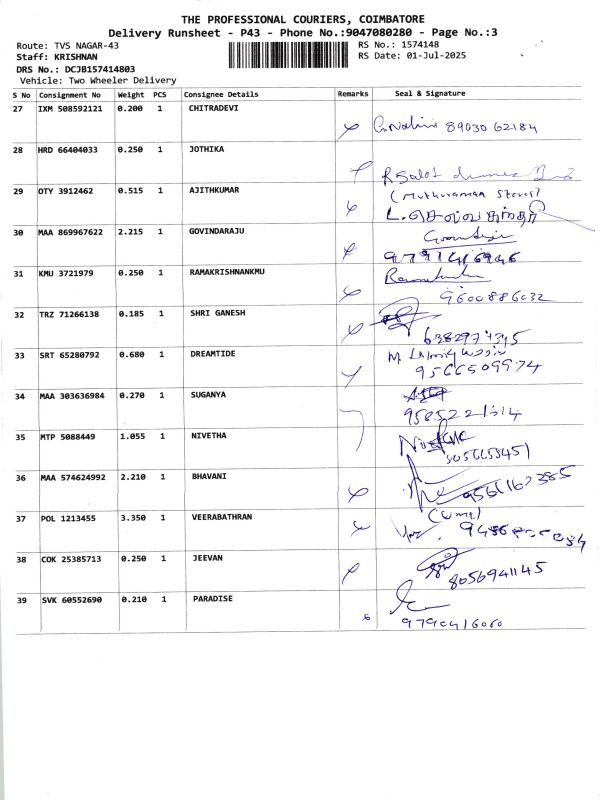 THE PROFESSIONAL COURIERS, COIMBATORE
Delivery Runsheet - P43 - Phone No.:9047080280 - Page No.:3
Route: TVS NAGAR-43 RS No.: 1574148
Staff: KRISHNAN RS Date: 01-Jul-2025
DRS No.: DCJB157414803
Vehicle: Two Wheeler Delivery
S No Consignment No Weight PCS Consignee Details Remarks Seal & Signature
27 IXM 508592121 0.200 1 CHITRADEVI
89030 62184
28 HRD 66404033 0.250 1 JOTHIKA
29 OTY 3912462 0.515 1 AJITHKUMAR
(Muthuraman Stores)
30 MAA 869967622 2.215 1 GOVINDARAJU
9791416946
31 KMU 3721979 0.250 1 RAMAKRISHNANKMU
9600886032
32 TRZ 71266138 0.185 1 SHRI GANESH
33 SRT 65280792 0.680 1 DREAMTIDE
9566509974
34 MAA 303636984 0.270 1 SUGANYA
35 MTP 5088449 1.055 1 NIVETHA
36 MAA 574624992 2.210 1 BHAVANI
37 POL 1213455 3.350 1 VEERABATHRAN
38 COK 25385713 0.250 1 JEEVAN
8056941145
39 SVK 60552690 0.210 1 PARADISE
9790416060